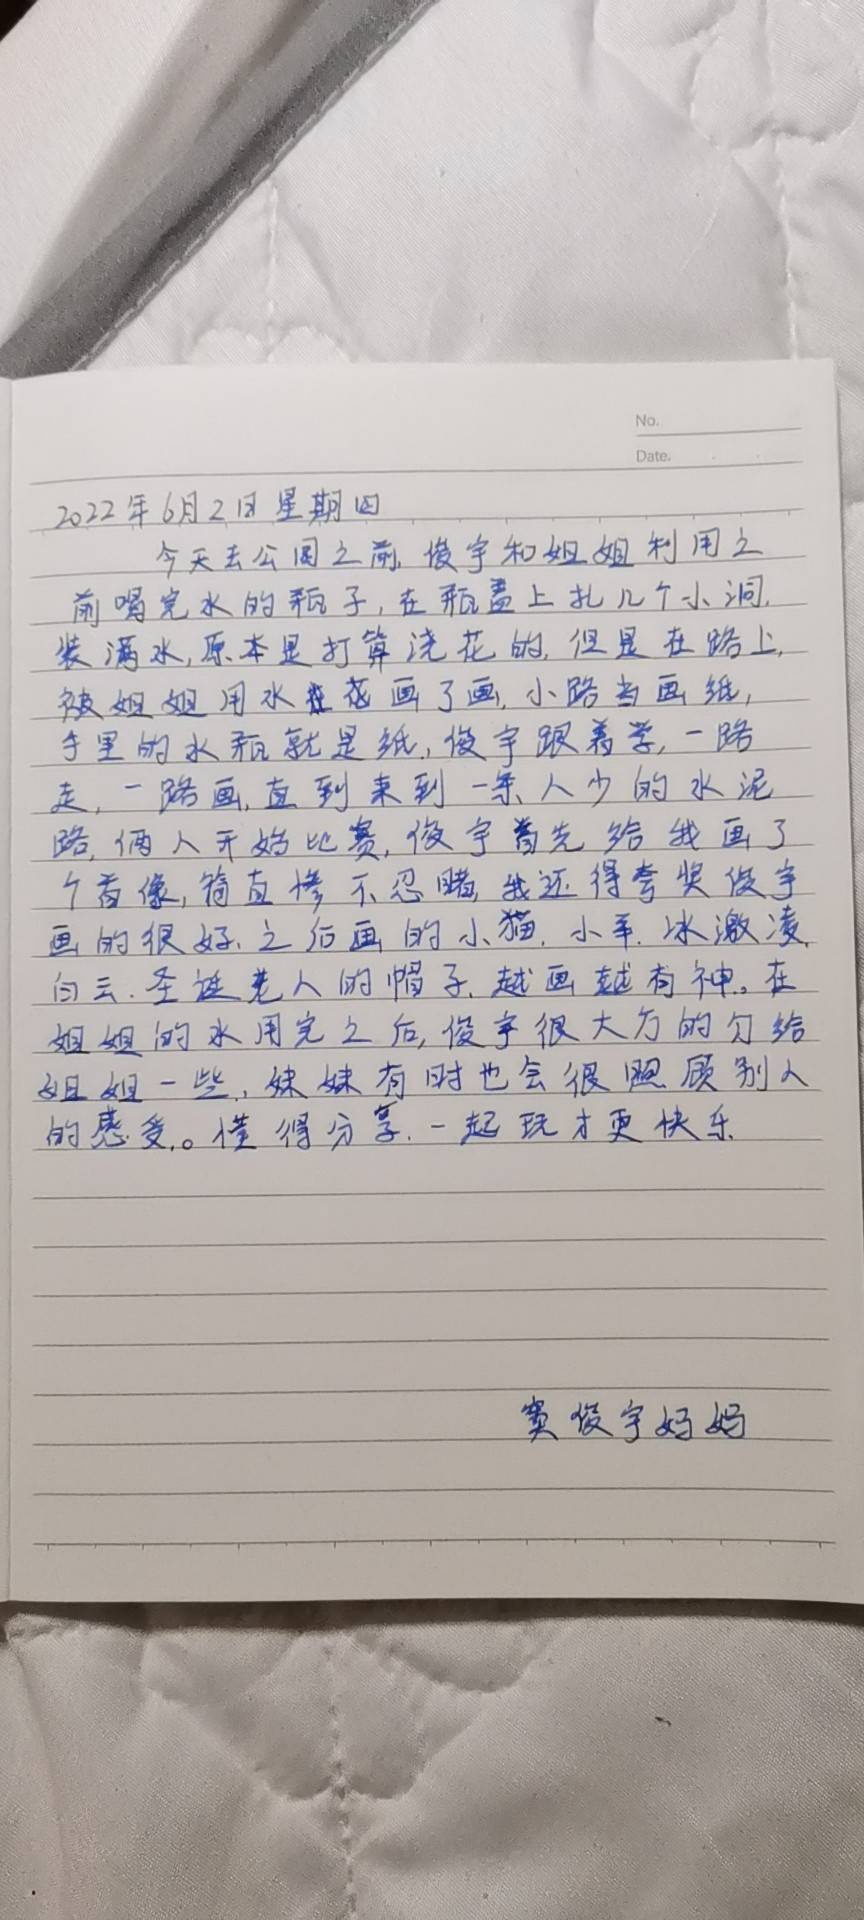 No.
Date.
2022年6月2日星期四
今天去公园之前,俊宇和姐姐利用之
前喝完水的瓶子,在瓶盖上扎几个小洞,
装满水,原本是打算浇花的,但是在路上,
被姐姐用水在画了画,小路当画纸,
手里的水瓶就是纸,俊宇跟着学,一路
走,一路画,直到来到一条人少的水泥
路,俩人开始比赛,俊宇首先给我画了
个首像,简直惨不忍睹,我还得夸奖俊宇
画的很好,之后画的小猫,小羊,冰激凌,
白云,圣诞老人的帽子,越画越有神。在
姐姐的水用完之后,俊宇很大方的匀给
姐姐一些,妹妹有时也会很照顾别人
的感受。懂得分享,一起玩才更快乐
窦俊宇妈妈